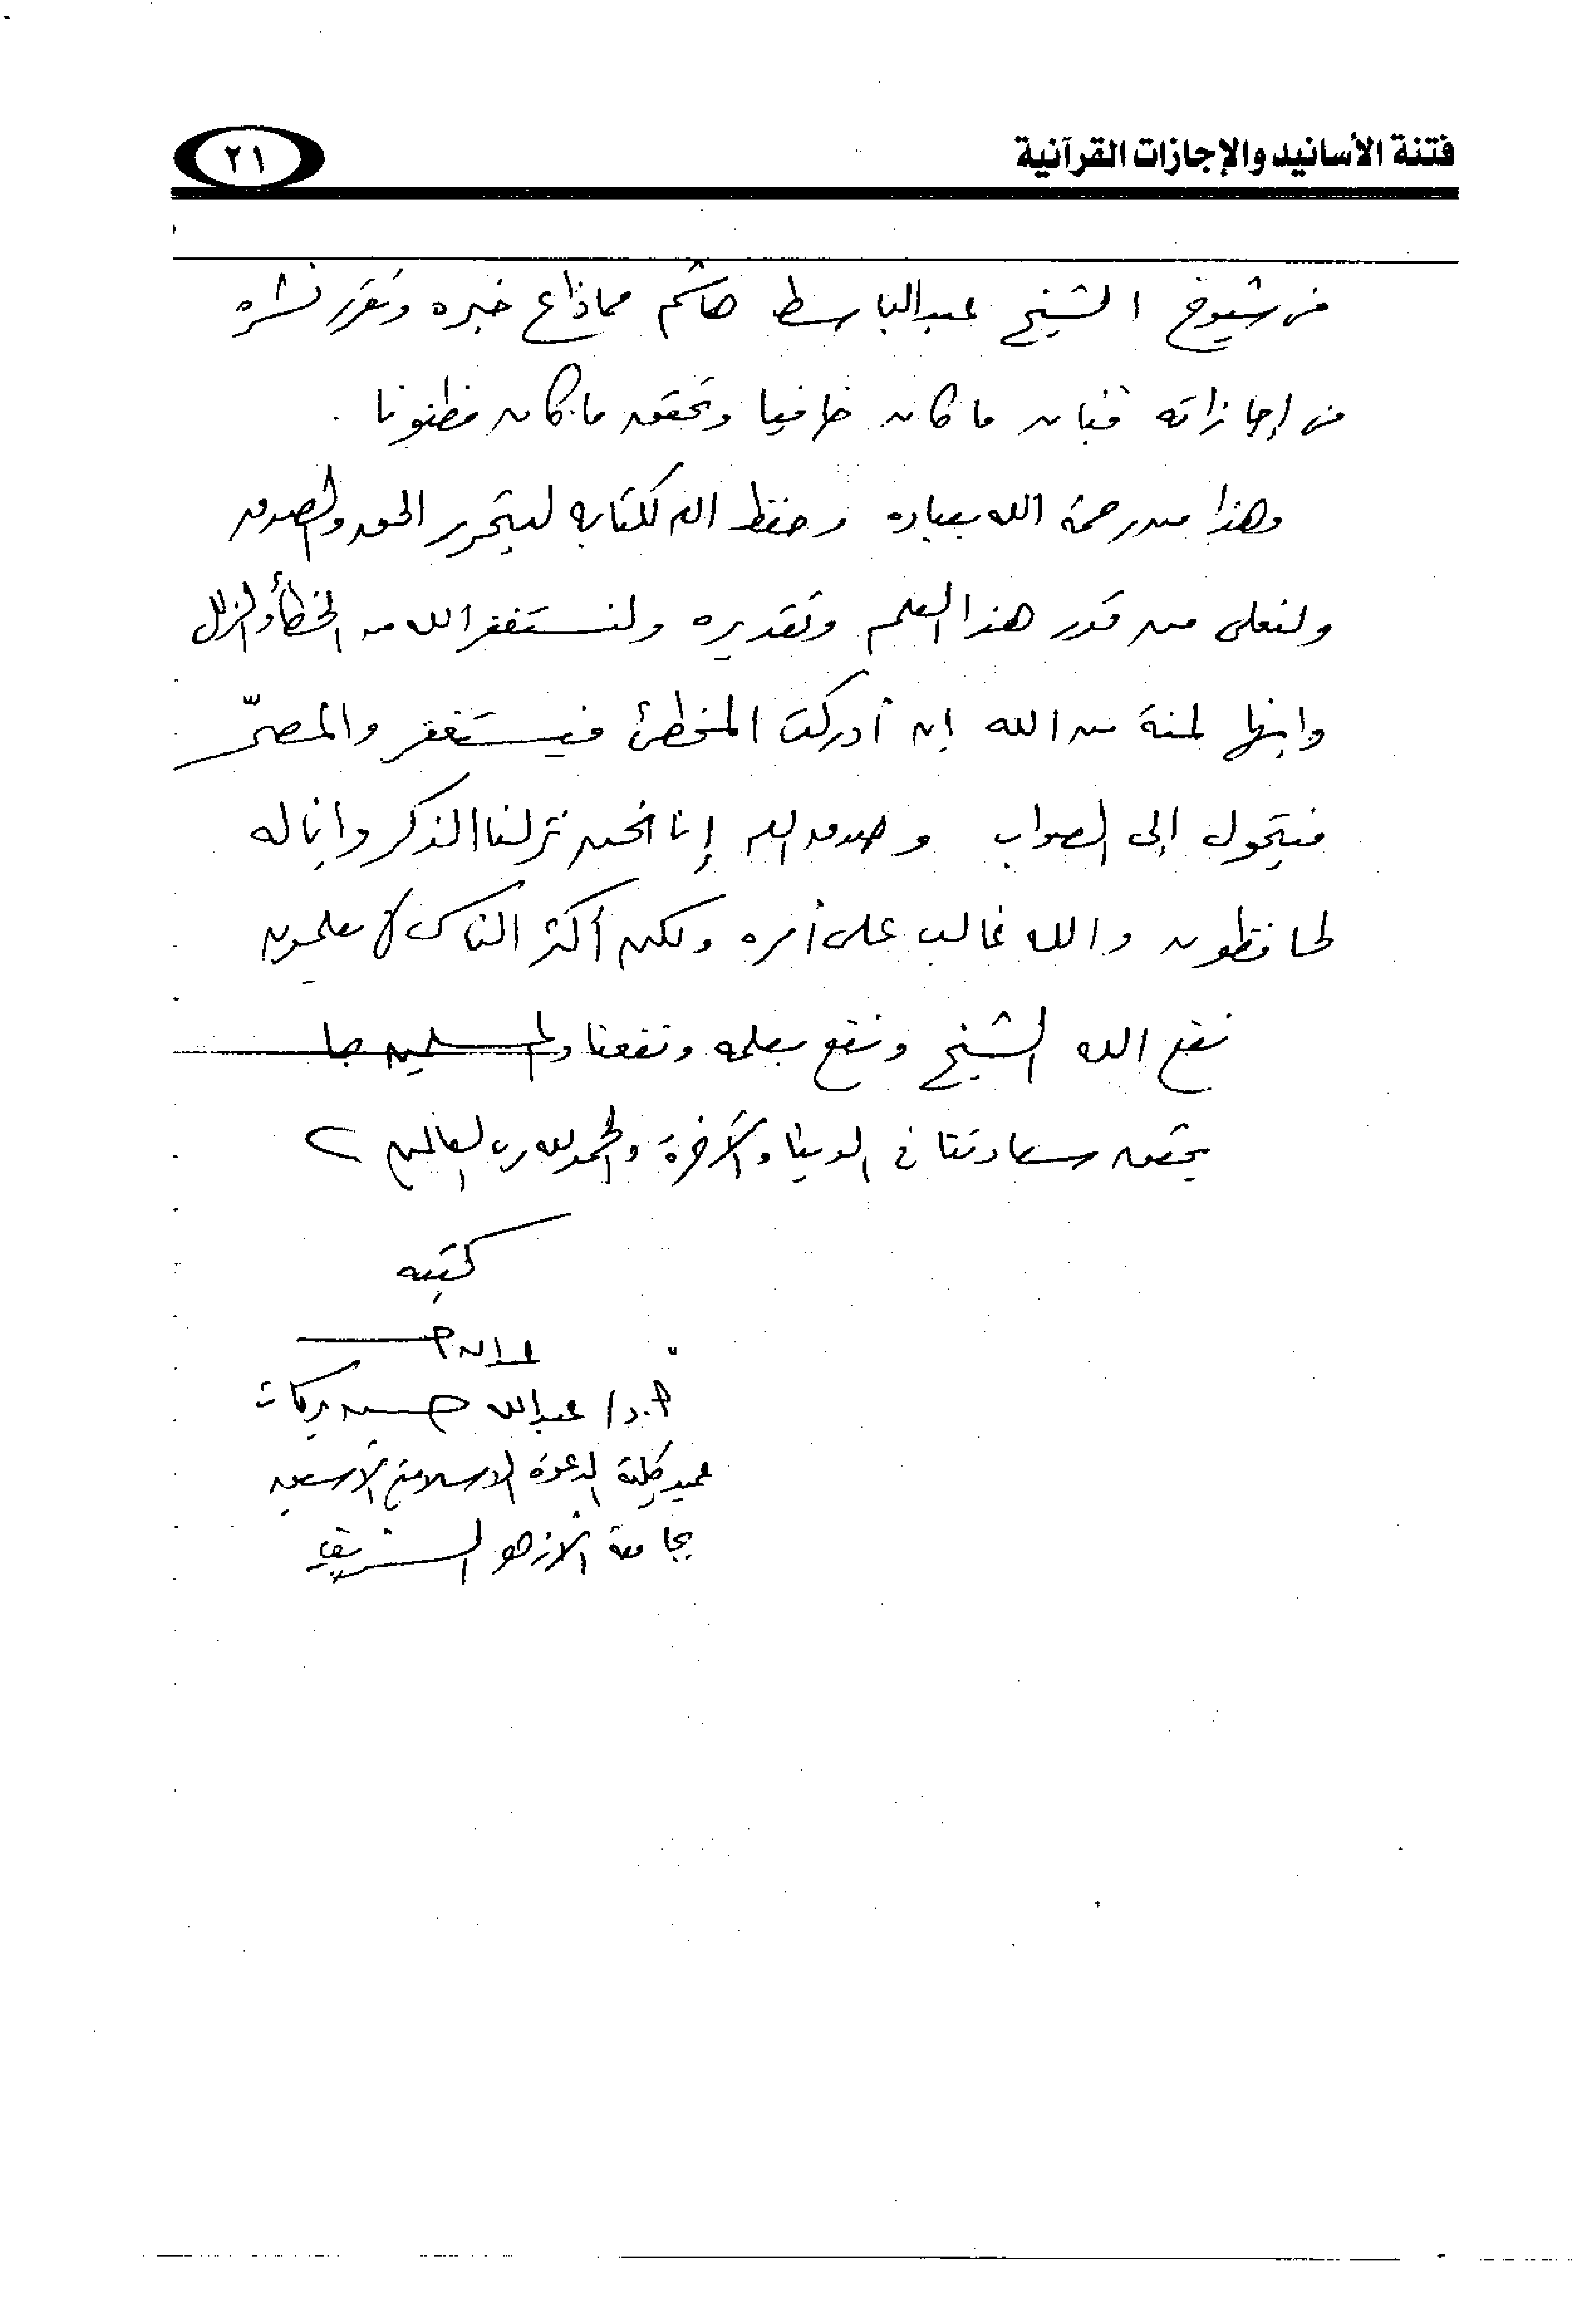 فتنة الأسانيد والإجازات القرآنية
٢١
فى شيوخ الشيخ عبد الباسط هاشم مما ذاع خبره وتقرر نشره
فى إجازاته فبان ما كان خافيا وتحقق ما كان مظنونا .
وهذا من رحمة الله بعباده وحفظ الله لكتابه ليتحرر الحق والصدق
ولنعلى من قدر هذا العلم وتقديره ولنستغفر الله من الخطأ والزلل
وإنها لمنة من الله إن أدركت المخطئ فيستغفر والمصرّ
فيتحول إلى الصواب وصدق الله إنا نحن نزلنا الذكر وإنا له
لحافظون والله غالب على أمره ولكن أكثر الناس لا يعلمون
نفع الله الشيخ ونفع بعلمه ونفعنا والمسلمين بما
يحقق سعادتنا فى الدنيا والآخرة والحمد لله رب العالمين
كتبه
أ.د/ عبدالله حسن بركات
عميد كلية الدعوة الإسلامية الأسبق
بجامعة الأزهر الشريف